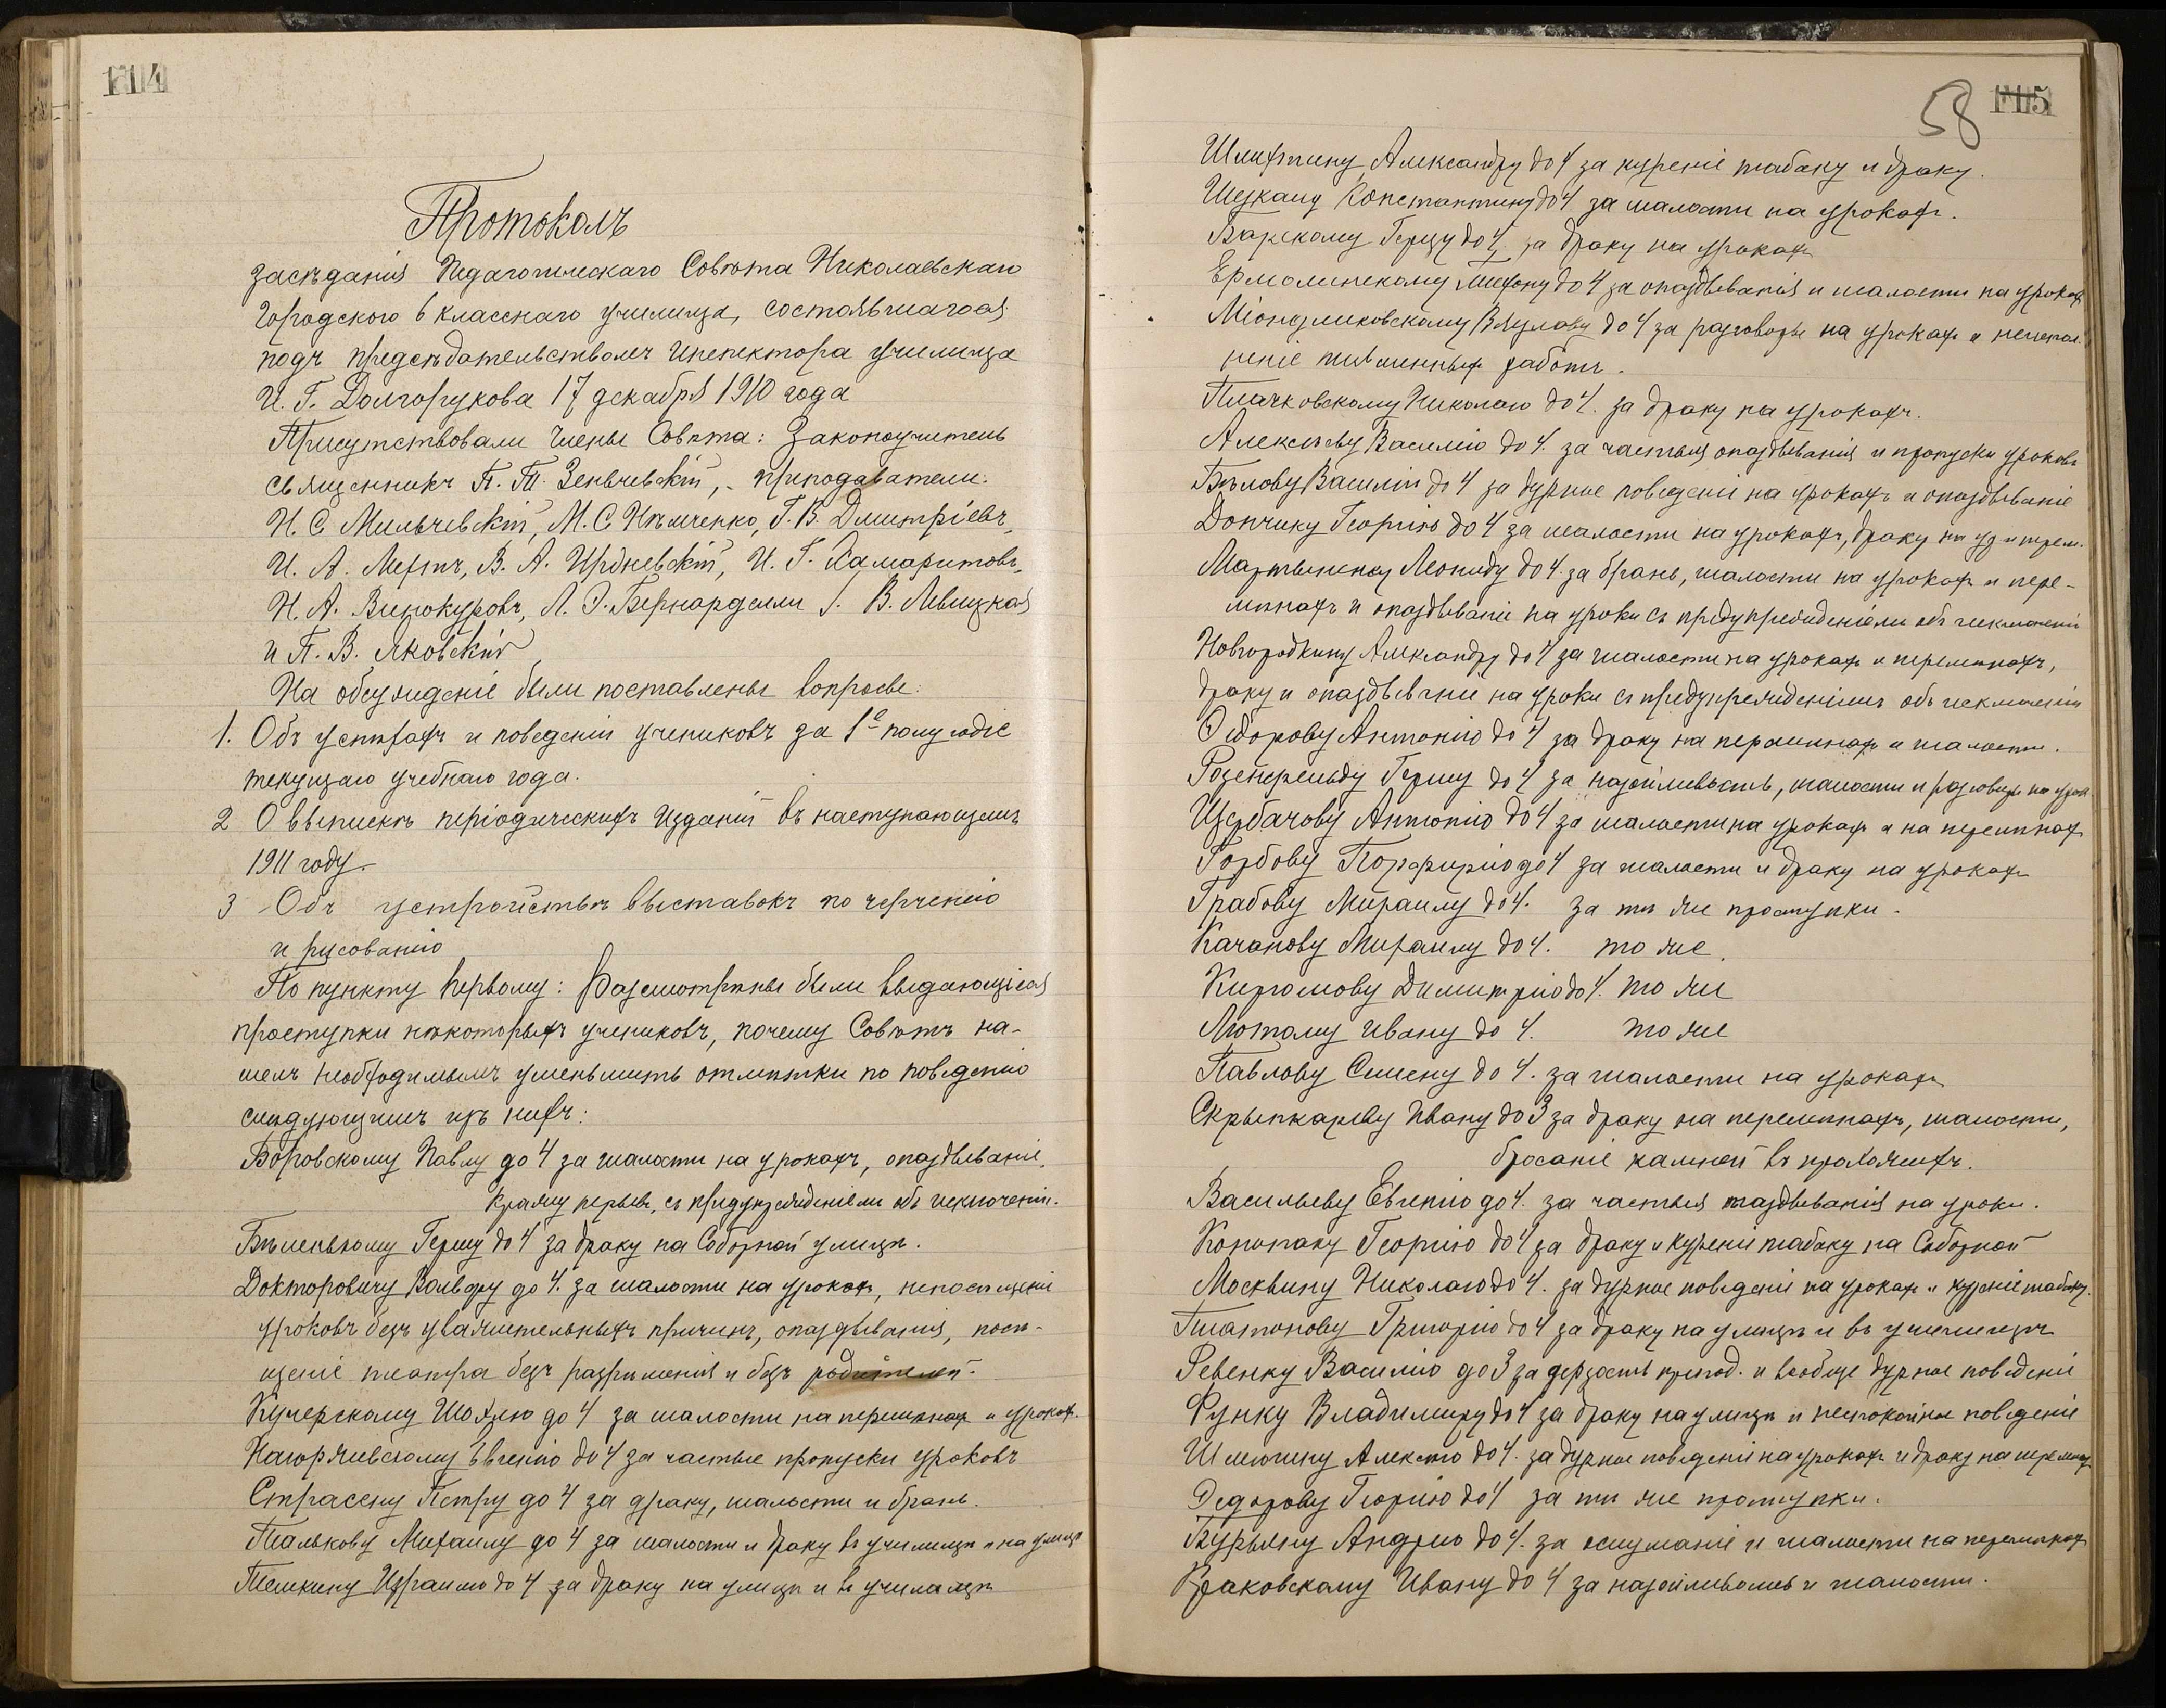 114
Протоколъ
засѣданія Педагогическаго Совѣта Николаевскаго
Городского 6 класснаго училища, состоявшагося
подъ предсѣдательствомъ инспектора училища
И. Г. Долгорукова 17 декабря 1910 года
Присутствовали члены Совѣта: Законоучитель
священникъ П. Т. Зеньчевскій, преподаватели:
Н. С. Мильчевскій, М. С. Нѣмченко, Г. В. Дмитріевъ,
И. А. В. А. И. Г. Самаритовъ,
Н. А. Винокуровъ, Л. Э. Бернарделли В. Левицкая
и П. В. Яковскій
На обсужденіе были поставлены вопросы:
1. Объ успѣхахъ и поведеніи учениковъ за 1е полугодіе
текущаго учебнаго года.
2 О выпискѣ періодическихъ изданій въ наступающемъ
1911 году.
3 Объ устройствѣ выставокъ по черченію
и рисованію
По пункту первому: Разсмотрѣны были выдающіеся
проступки нѣкоторыхъ учениковъ, почему Совѣтъ на-
шелъ необходимымъ уменьшить отмѣтки по поведенію
слѣдующимъ изъ нихъ:
Боровскому Павлу до 4 за шалости на урокахъ, опаздываніе,
кражу перьевъ, съ предупрежденіемъ объ исключеніи.
Бѣленькому Гершу до 4 за драку на Соборной улицѣ.
Докторовичу Вольфу до 4. за шалости на урокахъ, непосѣщеніе
уроковъ безъ уважительныхъ причинъ, опаздыванія, посѣ-
щеніе театра безъ разрѣшенія и безъ родителей.
Кучерскому до 4 за шалости на перемѣнахъ и урокахъ.
Нагоржевскому Евгенію до 4 за частые пропуски уроковъ
Петру до 4 за драку, шалости и брань.
Талькову Михаилу до 4 за шалости и драку въ училищѣ и на улицѣ
Темкину Израилю до 4 за драку на улицѣ и въ училищѣ
58 115
Александру до 4 за куреніе табаку и драку.
Константину до 4 за шалости на урокахъ.
Барскому Герцу до 4 за драку на урокахъ
Ермолинскому до 4 за опаздыванія и шалости на урокахъ
до 4 за разговоры на урокахъ и неиспол-
неніе письменныхъ работъ.
Плачковскому Николаю до 4. за драку на урокахъ.
Алексѣеву Василію до 4. за частыя опаздыванія и пропуски уроковъ
Бѣлову Василію до 4 за дурное поведеніе на урокахъ и опаздываніе
Дончику Георгію до 4 за шалости на урокахъ, драку на
Мартыненку Леониду до 4. за брань, шалости на урокахъ и пере-
мѣнахъ и опаздываніе на уроки съ предупрежденіемъ объ исключеніи
Новгородкину Александру до 4 за шалости на урокахъ и перемѣнахъ,
драку и опаздываніе на уроки съ предупрежденіемъ объ исключеніи
Ѳедорову Антонію до 4 за драку на перемѣнахъ и шалости.
Розенфельду Гершу до 4 за назойливость, шалости и разговоры на урок.
Щербачову Антонію до 4 за шалости на урокахъ и на перемѣнахъ
Горбову Порфирію до 4 за шалости и драку на урокахъ
Грабову Михаилу до 4. за тѣ же проступки.
Качанову Михаилу до 4. то же.
Димитрію до 4. то же
Лютому Ивану до 4. то же
Павлову Семену до 4. за шалости на урокахъ
Ивану до 3 за драку на перемѣнахъ, шалости,
бросаніе камней въ прохожихъ.
Васильеву Евгенію до 4. за частыя опаздыванія на уроки.
Конопаку Георгію до 4 за драку и куреніе табаку на Соборной
Москвину Николаю до 4. за дурное поведеніе на урокахъ и куреніе табаку.
Платонову Григорію до 4 за драку на улицѣ и въ училищѣ
Ревенку Василію до 3 за дерзость препод. и вообще дурное поведеніе
Функу Владимиру до 4 за драку на улицѣ и неспокойное поведеніе
Алексѣю до 4. за дурное поведеніе на урокахъ и драку на перемѣнахъ
Ѳедорову Георгію до 4 за тѣ же проступки.
Андрею до 4. за ослушаніе и шалости на перемѣнахъ
Краковскому Ивану до 4 за назойливость и шалости.